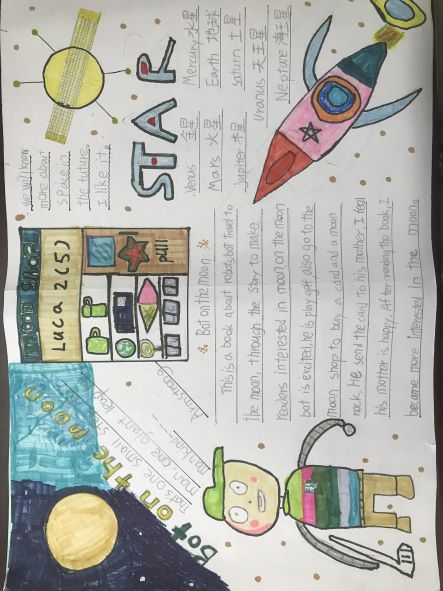 Bot on the moon
That's one small step
man, one giant leap
mankind
Armstrong
Moon Shop
Luca 2(5)
pull
STAR
Venus 金星
Mercury 水星
Mars 火星
Earth 地球
Jupiter 木星
Saturn 土星
Uranus 天王星
Neptune 海王星
we will know
more about
space in
the future.
I like it.
※ Bot on the moon ※
This is a book about robots bot travel to
the moon, through the story to make
readers interested in moon on the moon
bot is excited he is play golf, also go to the
moon shop to buy a card and a moon
rock. He sent the card to his mother I feel
his mother is happy. After reading the book, I
became more interested in the moon.